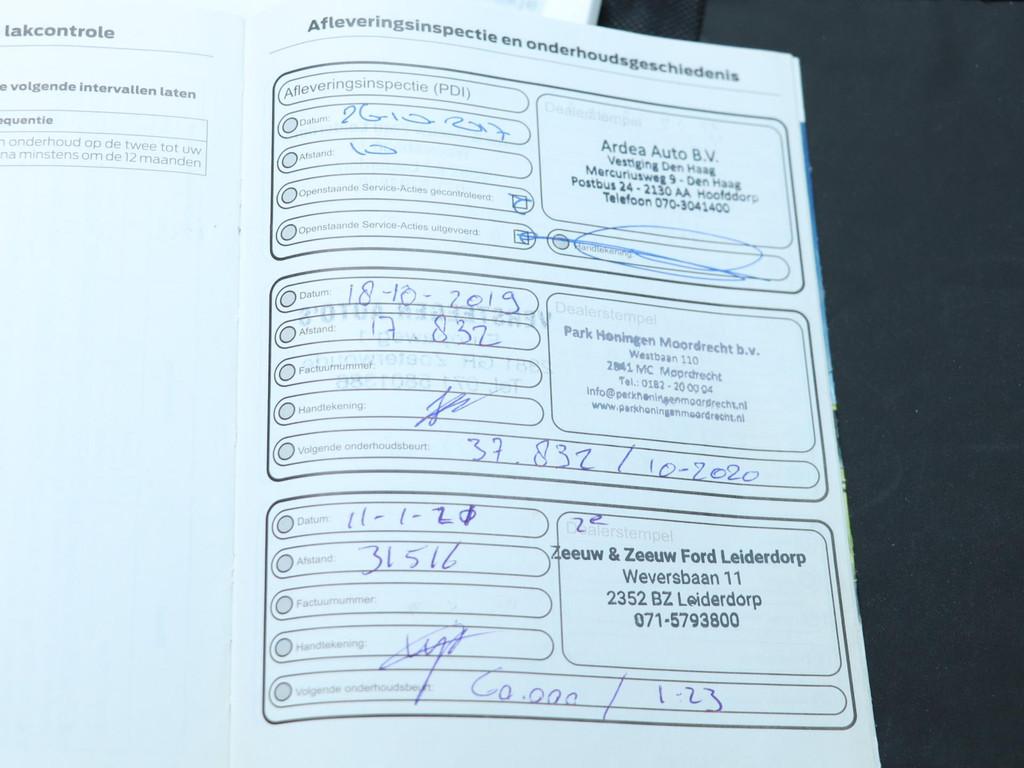 lakcontrole
e volgende intervallen laten
equentie
n onderhoud op de twee tot uw
na minstens om de 12 maanden
Afleveringsinspectie en onderhoudsgeschiedenis
Afleveringsinspectie (PDI)
Datum: 26 10 2017
Afstand: 10
Openstaande Service-Acties gecontroleerd:
Openstaande Service-Acties uitgevoerd:
Dealerstempel
Ardea Auto B.V.
Vestiging Den Haag
Mercuriusweg 9 - Den Haag
Postbus 24 - 2130 AA Hoofddorp
Telefoon 070-3041400
Handtekening:
Datum: 18-10-2019
Afstand: 17 832
Factuurnummer:
Handtekening:
Volgende onderhoudsbeurt: 37.832 / 10-2020
Dealerstempel
Park Honingen Moordrecht b.v.
Westbaan 110
2841 MC Moordrecht
Tel.: 0182 - 20 00 04
info@parkhoningenmoordrecht.nl
www.parkhoningenmoordrecht.nl
Datum: 11-1-21
Afstand: 31516
Factuurnummer:
Handtekening:
Volgende onderhoudsbeurt: 60.000 / 1-23
2e
Dealerstempel
Zeeuw & Zeeuw Ford Leiderdorp
Weversbaan 11
2352 BZ Leiderdorp
071-5793800